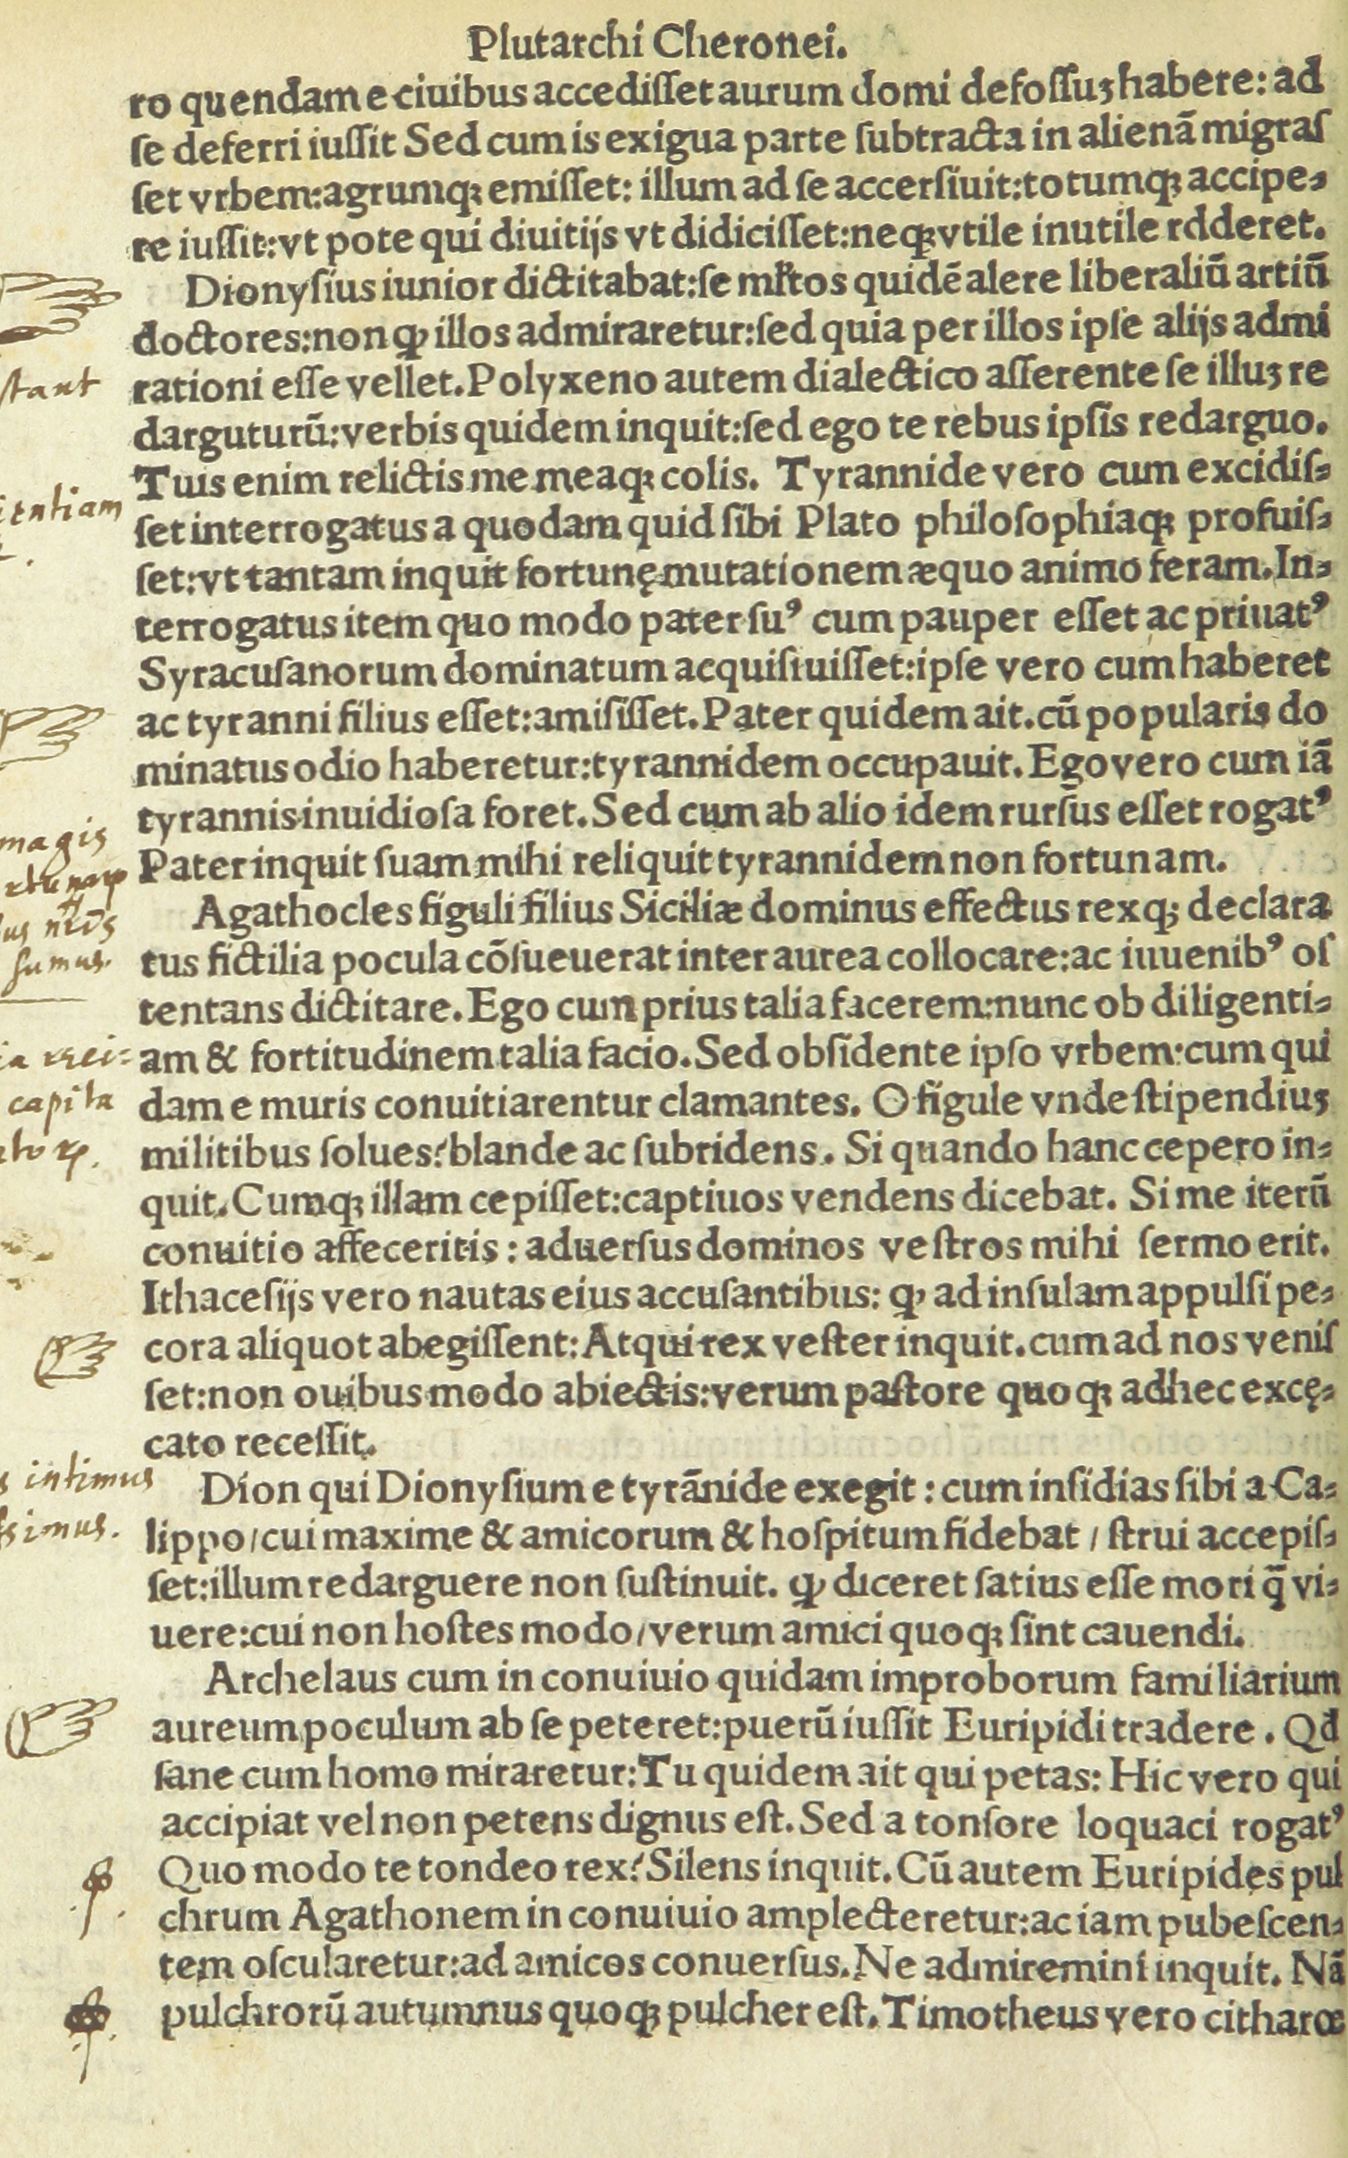 Plutarchi Cheronei.
ro quendam e ciuibus accedisset aurum domi defossuꝫ habere: ad
se deferri iussit Sed cum is exigua parte subtracta in alienā migras
set vrbem: agrumqꝫ emisset: illum ad se accersiuit: totumqꝫ accipe⸗
re iussit: vt pote qui diuitijs vt didicisset: neqꝫ vtile inutile rdderet.
Dionysius iunior dictitabat: se ml̄tos quidē alere liberaliū artiū
stant
doctores: non ꝙ illos admiraretur: sed quia per illos ipse alijs admi
rationi esse vellet. Polyxeno autem dialectico asserente se illuꝫ re
darguturū: verbis quidem inquit: sed ego te rebus ipsis redarguo.
Tuis enim relictis me meaqꝫ colis. Tyrannide vero cum excidis⸗
set interrogatus a quodam quid sibi Plato philosophiaqꝫ profuis⸗
set: vt tantam inquit fortunę mutationem æquo animo feram. In⸗
terrogatus item quo modo pater suꝰ cum pauper esset ac priuatꝰ
Syracusanorum dominatum acquisiuisset: ipse vero cum haberet
ac tyranni filius esset: amisisset. Pater quidem ait. cū popularis do
minatus odio haberetur: tyrannidem occupauit. Ego vero cum iā
tyrannis inuidiosa foret. Sed cum ab alio idem rursus esset rogatꝰ
magis
Pater inquit suam mihi reliquit tyrannidem non fortunam.
Agathocles figuli filius Siciliæ dominus effectus rexqꝫ declara
tus fictilia pocula cōsueuerat inter aurea collocare: ac iuuenibꝰ os
sumus.
tentans dictitare. Ego cum prius talia facerem: nunc ob diligenti⸗
am & fortitudinem talia facio. Sed obsidente ipso vrbem: cum qui
capita
dam e muris conuitiarentur clamantes. O figule vnde stipendiuꝫ
militibus solues? blande ac subridens. Si quando hanc cepero in⸗
quit. Cumqꝫ illam cepisset: captiuos vendens dicebat. Si me iterū
conuitio affeceritis: aduersus dominos vestros mihi sermo erit.
Ithacesijs vero nautas eius accusantibus: ꝙ ad insulam appulsi pe⸗
cora aliquot abegissent: Atqui rex vester inquit. cum ad nos venis
set: non ouibus modo abiectis: verum pastore quoqꝫ adhec excę⸗
cato recessit.
s intimus
Dion qui Dionysium e tyrānide exegit: cum insidias sibi a Ca⸗
ssimus.
lippo/ cui maxime & amicorum & hospitum fidebat/ strui accepis⸗
set: illum redarguere non sustinuit. ꝙ diceret satius esse mori q̄ vi⸗
uere: cui non hostes modo/ verum amici quoqꝫ sint cauendi.
Archelaus cum in conuiuio quidam improborum familiarium
aureum poculum ab se peteret: puerū iussit Euripidi tradere. Qd
sane cum homo miraretur: Tu quidem ait qui petas: Hic vero qui
accipiat vel non petens dignus est. Sed a tonsore loquaci rogatꝰ
Quo modo te tondeo rex? Silens inquit. Cū autem Euripides pul
chrum Agathonem in conuiuio amplecteretur: ac iam pubescen⸗
tem oscularetur: ad amicos conuersus. Ne admiremini inquit. Nā
pulchrorū autumnus quoqꝫ pulcher est. Timotheus vero citharœ